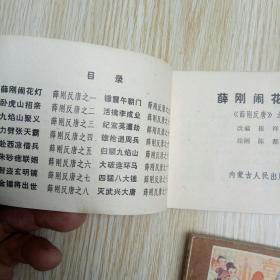 目 录
薛刚闹花灯 薛刚反唐之一 锤震午朝门 薛刚反唐之
卧虎山招亲 薛刚反唐之二 活擒李成业 薛刚反唐之
九焰山聚义 薛刚反唐之三 纪鸾英遭劫 薛刚反唐之
力劈张天霸 薛刚反唐之四 雄抢道周兵 薛刚反唐之
赴西凉借兵 薛刚反唐之五 归顺九焰山 薛刚反唐之
朱砂缘联姻 薛刚反唐之六 大破连环马 薛刚反唐之
智盗玄明镜 薛刚反唐之七 四猛八大锤 薛刚反唐之
金锤将出世 薛刚反唐之八 灭武兴大唐 薛刚反唐之
薛刚闹花
《薛刚反唐》
改编 崔祥
绘画 陈都
内蒙古人民出